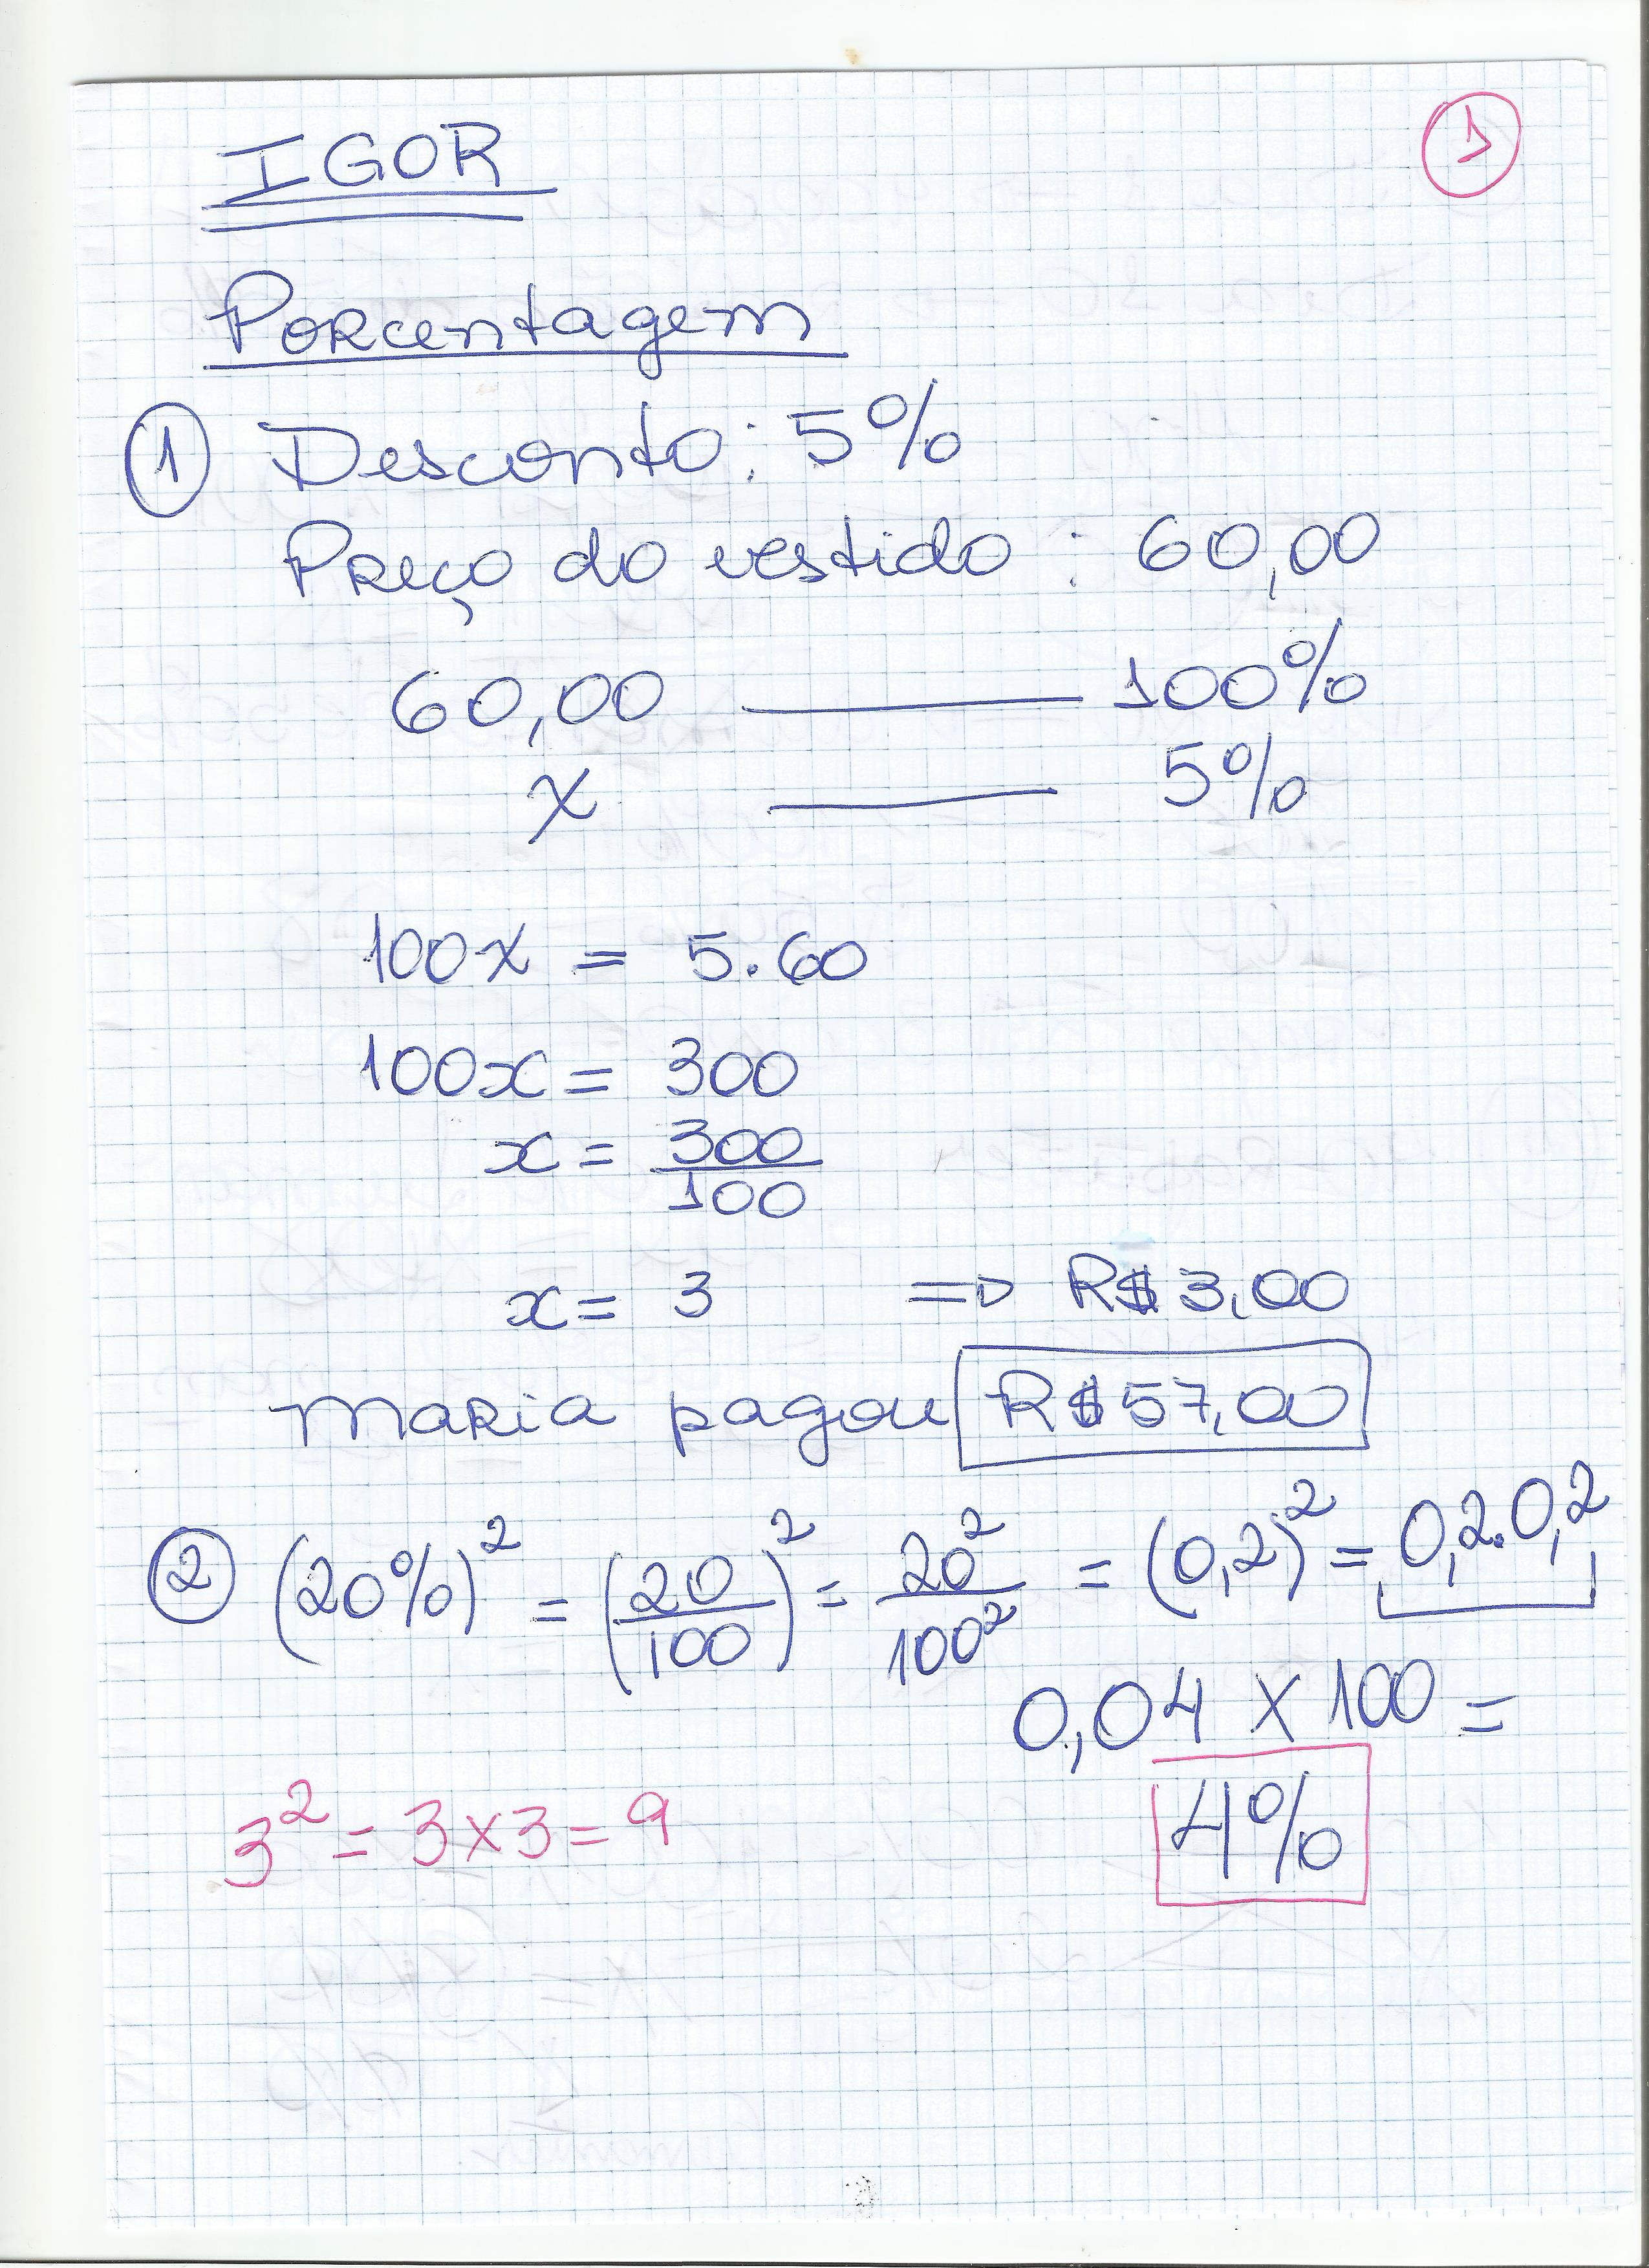 IGOR
1
Porcentagem
1 Desconto: 5%
Preço do vestido: 60,00
60,00 — 100%
x — 5%
100x = 5.60
100x = 300
x = 300/100
x = 3 => R$ 3,00
Maria pagou R$ 57,00
2 (20%)² = (20/100)² = 20²/100² = (0,2)² = 0,2.0,2
0,04 x 100 =
4%
3² = 3x3 = 9